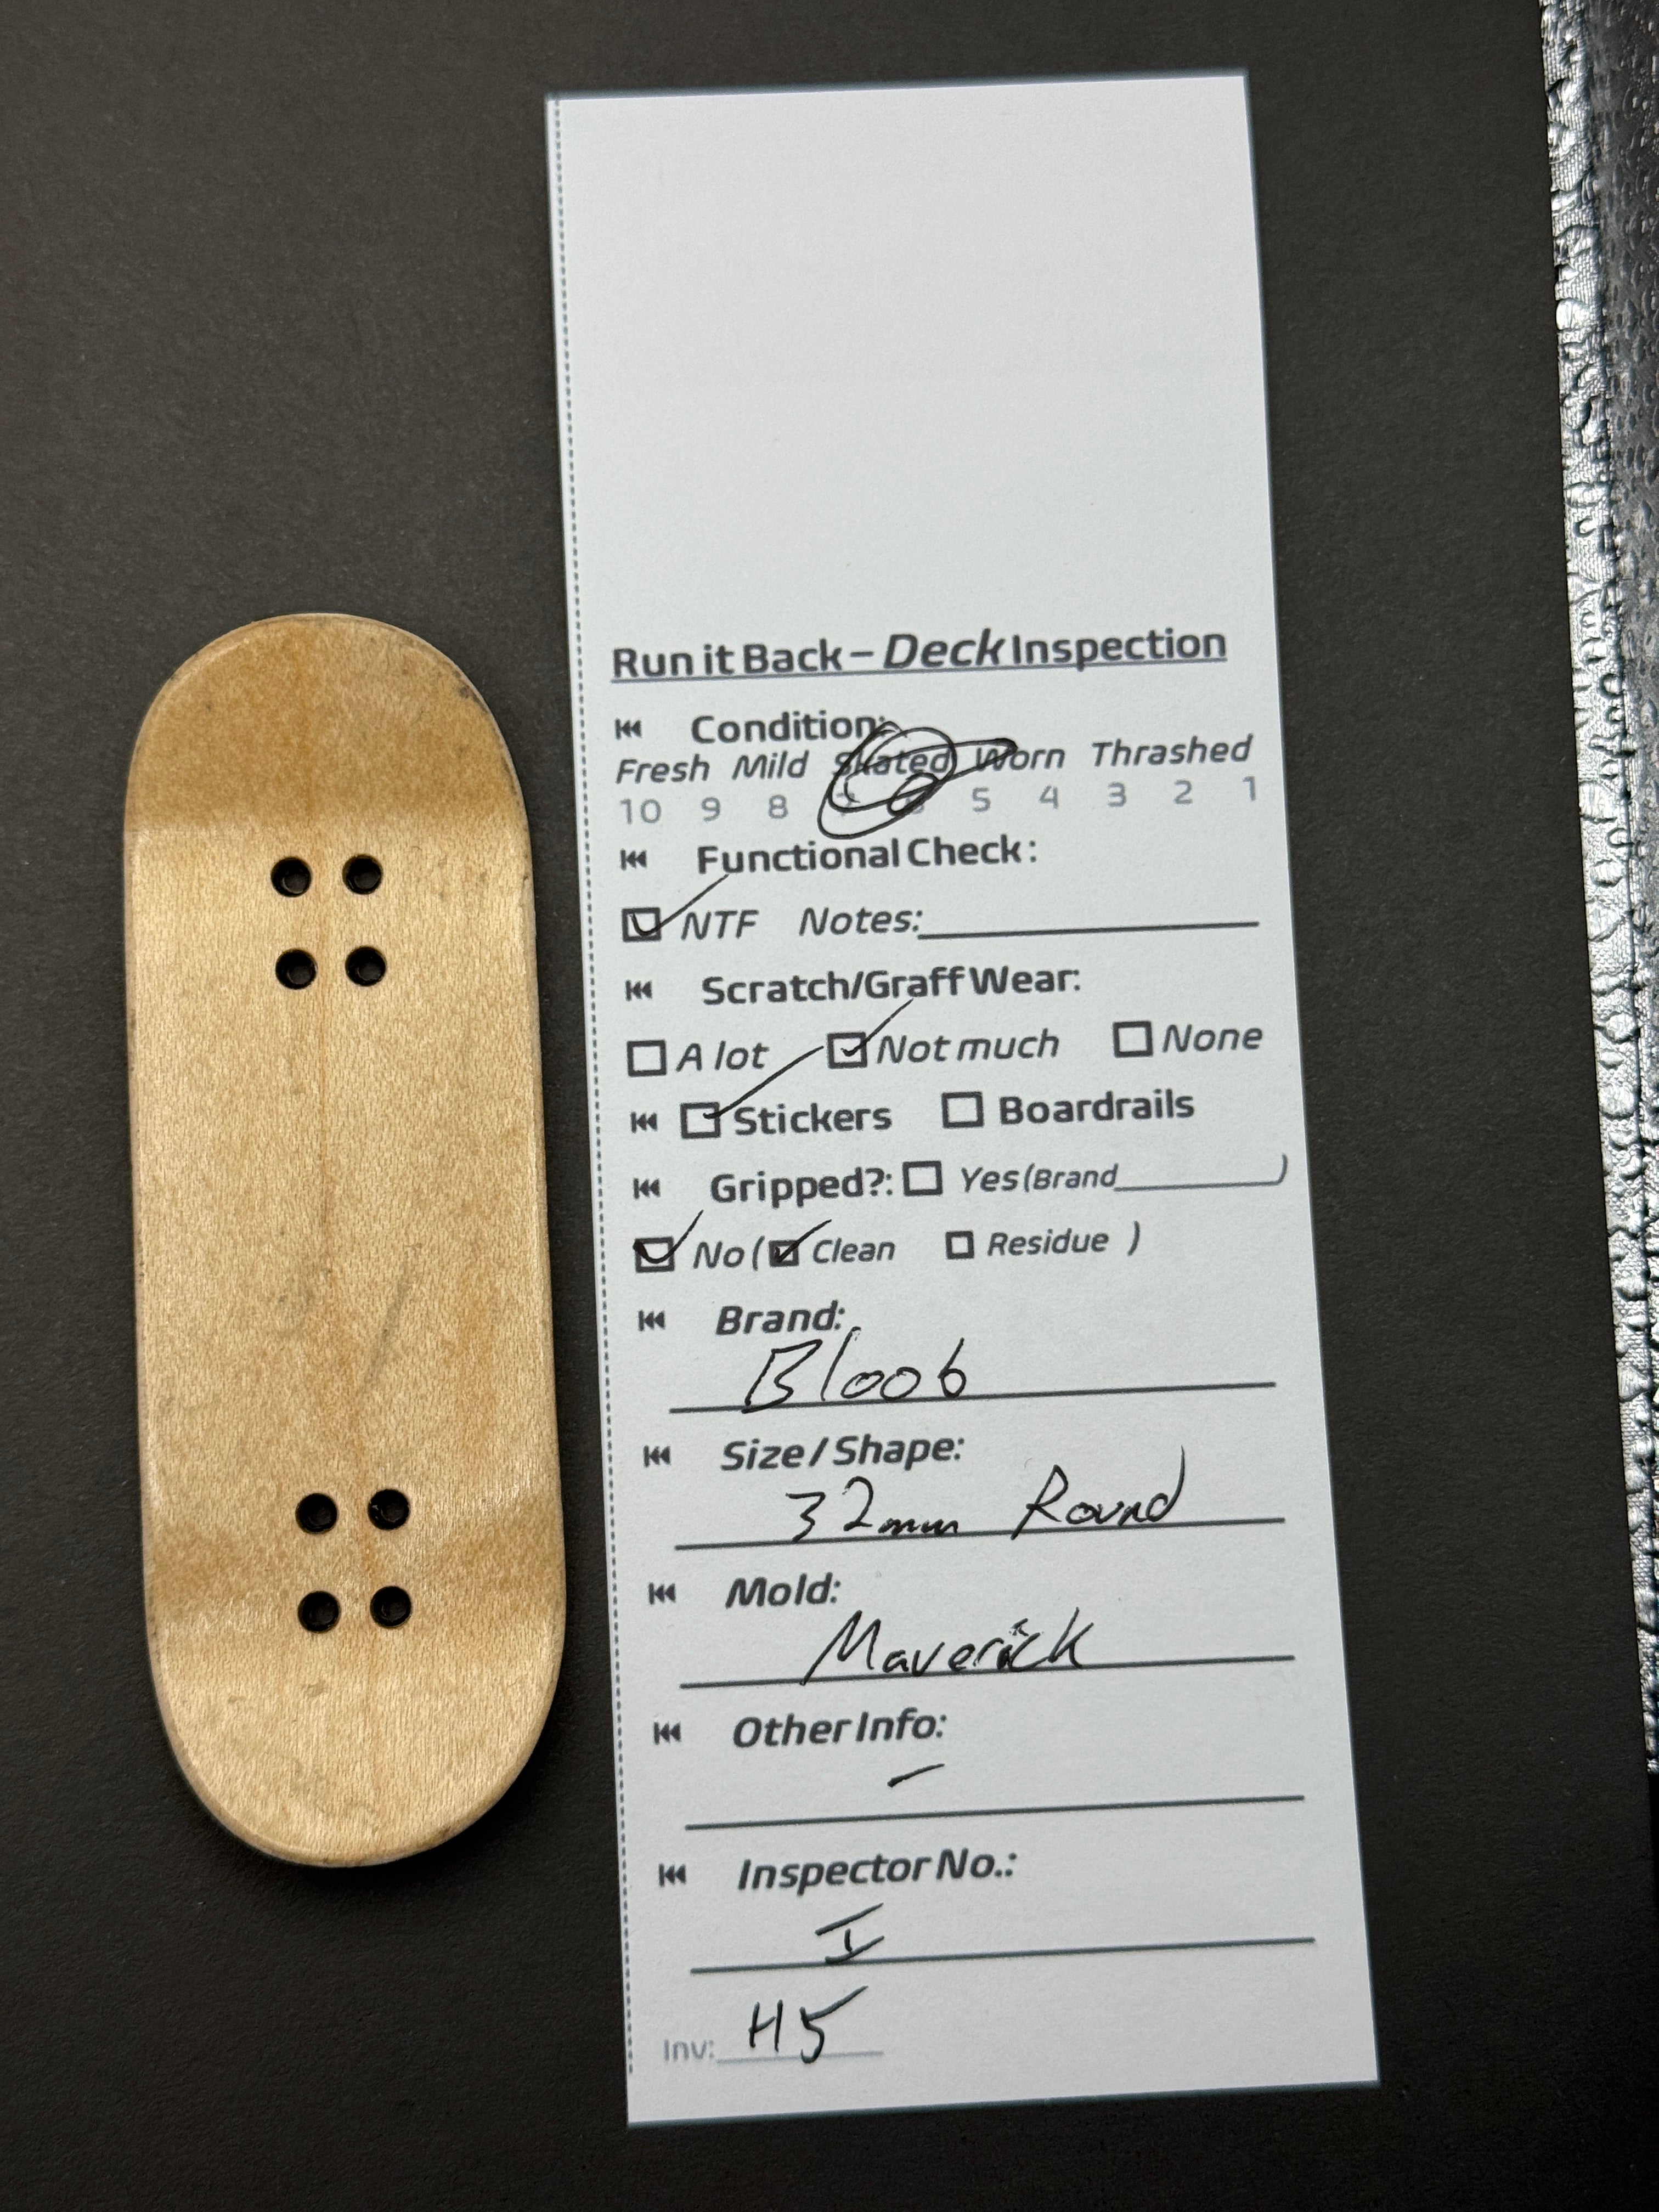 Run it Back – Deck Inspection
Condition:
Fresh Mild Skated Worn Thrashed
10 9 8 7 6 5 4 3 2 1
Functional Check:
NTF Notes:
Scratch/Graff Wear:
A lot Not much None
Stickers Boardrails
Gripped?: Yes (Brand )
No ( Clean Residue )
Brand:
Bloob
Size / Shape:
32mm Round
Mold:
Maverick
Other Info:
–
Inspector No.:
I
Inv: H5